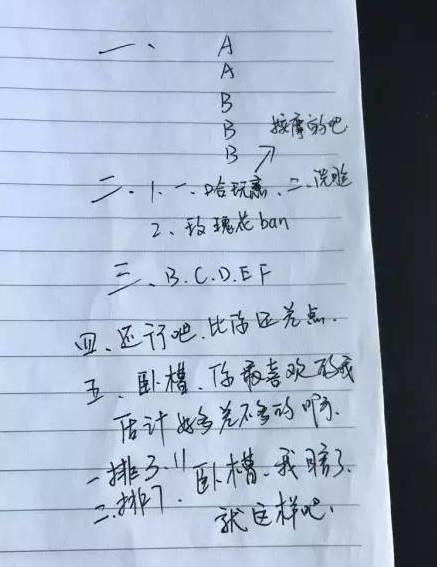 一、A
A
B
B
B 按摩的吧
二、1.一、哈玩意、二、洗脸
2、玫瑰花ban
三、B.C.D.E.F
四、还行吧.比你还差点.
五、卧槽.你最喜欢的我
估计好多差不多的啊.
一排3.11 卧槽.我瞎了.
二.排7. 就这样吧.